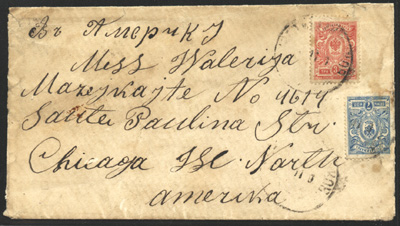 Въ Америку
Miss Waleriza
Mazejkajte No 4614
Sauta Paulina Str.
Chicaga Ill. North
amerika